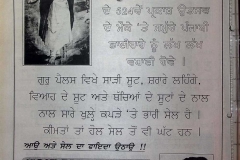 ਦੇ 524ਵੇਂ ਪ੍ਰਕਾਸ਼ ਉਤਸਵ
ਦੇ ਮੌਕੇ 'ਤੇ ਸਮੂੰਹ ਪੰਜਾਬੀ
ਭਾਈਚਾਰੇ ਨੂੰ ਲੱਖ ਲੱਖ
ਵਧਾਈ ਹੋਵੇ ।
ਗੁਰੂ ਪੈਲਸ ਵਿਖੇ ਸਾੜੀ ਸੂਟ, ਸ਼ਰਾਰੇ ਲਹਿੰਗੇ,
ਵਿਆਹ ਦੇ ਸੂਟ ਅਤੇ ਬੱਚਿਆਂ ਦੇ ਸੂਟਾਂ ਦੇ ਨਾਲ
ਨਾਲ ਸਾਰੇ ਖੁੱਲੇ ਕਪੜੇ 'ਤੇ ਭਾਰੀ ਸੇਲ ਹੈ ।
ਕੀਮਤਾਂ ਤਾਂ ਹੋਲ ਸੇਲ ਤੋਂ ਵੀ ਘੱਟ ਹਨ ।
ਆਓ ਅਤੇ ਸੇਲ ਦਾ ਫਾਇਦਾ ਉਠਾਓ !!